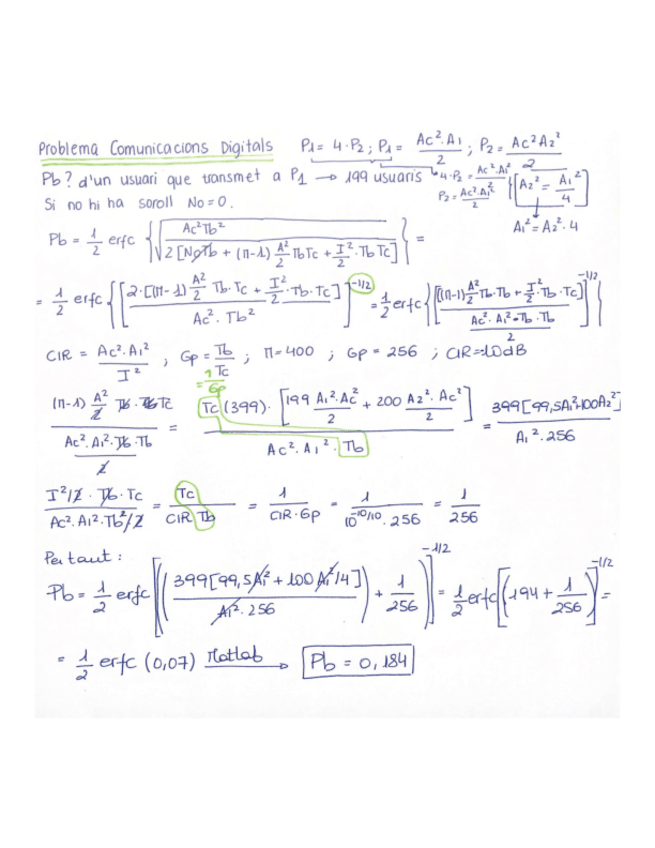 Problema Comunicacions Digitals P1 = 4·P2 ; P1 = Ac²·A1/2 ; P2 = Ac²A2²/2
Pb? d'un usuari que transmet a P1 → 199 usuaris 4·P2 = Ac²·A1²/2 P2 = Ac²·A1²/ {[A2² = A1²/4]
Si no hi ha soroll No=0. A1² = A2²·4
Pb = 1/2 erfc {√(Ac²Tb² / 2[NoTb + (M-1) A²/2 TbTc + I²/2 · Tb Tc])} =
= 1/2 erfc {[2·[(M-1) A²/2 Tb·Tc + I²/2 · Tb·Tc] / Ac²·Tb²]^-1/2 = 1/2 erfc {[((M-1) A²/2 Tb·Tb + I²/2 ·Tb·Tc] / (Ac²·A1²·Tb·Tb/2)]^-1/2}
CIR = Ac²·A1²/I² , Gp = Tb/Tc ; M=400 ; Gp = 256 ; CIR=10dB
= 1/Gp
(M-1) A²/2 Tb·TbTc / (Ac²·A1²·Tb·Tb/2) = Tc(399)·[199 A1²·Ac²/2 + 200 A2²·Ac²/2] / Ac²·A1²·Tb = 399[99,5A1²+100A2²] / A1²·256
I²/2 · Tb·Tc / Ac²·A1²·Tb²/2 = Tc / CIR Tb = 1 / CIR·Gp = 1 / 10^-10/10 · 256 = 1/256
Per tant :
Pb = 1/2 erfc [((399[99,5A1² + 100A1²/4] / A1²·256) + 1/256)]^-1/2 = 1/2 erfc [(194 + 1/256)]^-1/2 =
= 1/2 erfc (0,07) Matlab → Pb = 0,184